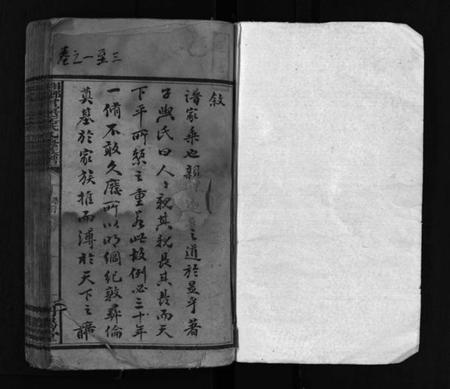 敘
譜家乘也親之道於是乎著
子輿氏曰人人親其親長其長而天
下平所繫之重若此故例必三十年
一修不敢久廢所以明綱紀敦彞倫
奠基於家族推而溥於天下之
卷之一至三